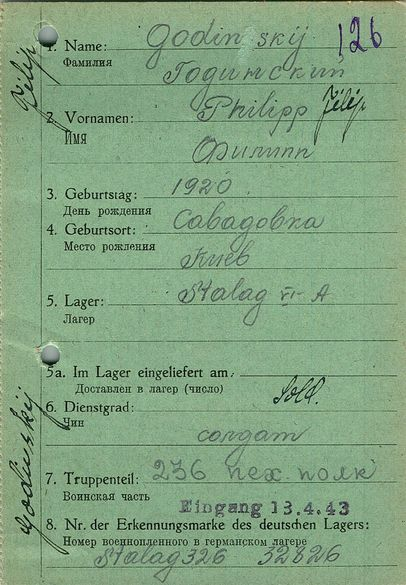 126
1. Name: Godinskij
Фамилия Годинский
2. Vornamen: Philipp Filip
Имя Филипп
3. Geburtstag: 1920
День рождения
4. Geburtsort: Савадовка
Место рождения Киев
5. Lager: Stalag VI-A
Лагер
5a. Im Lager eingeliefert am:
Доставлен в лагер (число)
6. Dienstgrad: Sold.
Чин солдат
7. Truppenteil: 236 пех. полк
Воинская часть
Eingang 13.4.43
8. Nr. der Erkennungsmarke des deutschen Lagers:
Номер военнопленного в германском лагере
Stalag 326 32826
Filip
Godinskij